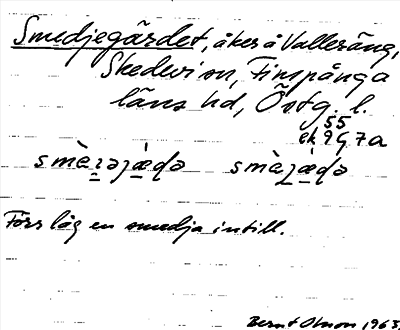 Smedjegärdet, åker å Valleräng,
Skedevi sn, Finspånga
läns hd, Östg. l.
55
ek 9G7a
smὲrəjæ̀ḍə smὲjæ̀ḍə
Förr låg en smedja intill.
Bernt Olsson 1963.